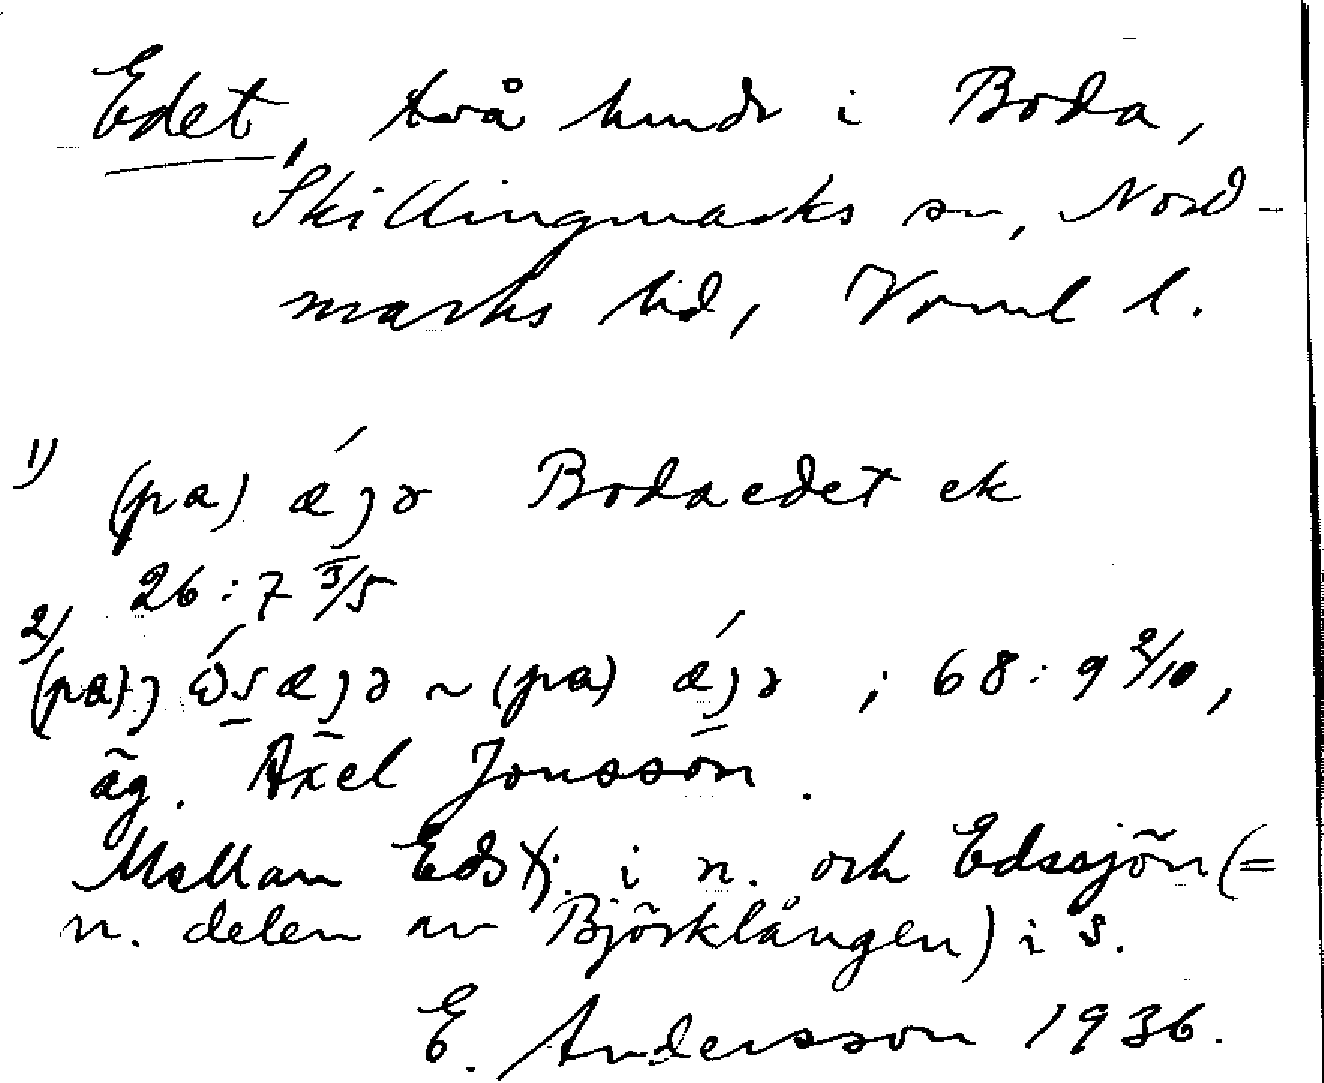 Edet, två hmdr i Boda,
Skillingmarks sn, Nord-
marks hd, Vrml l.
1) (pa) ǽȷə Bodaedet ek
26:7 3/5
2) (pa) æȷə ~ (pa) ǽȷə ; 68:9 2/10,
äg. Axel Jonsson.
Mellan Edstj. i n. och Edssjön (=
n. delen av Björklången) i s.
E. Andersson 1936.